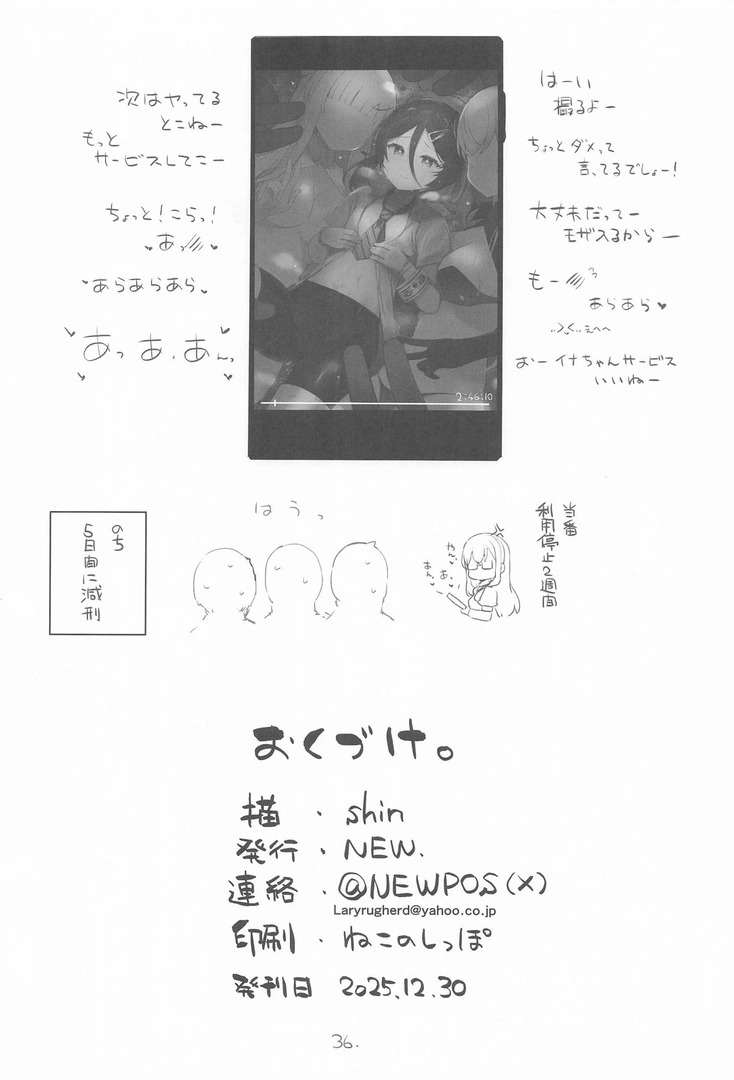 はーい
撮るよー
ちょっとダメって
言ってるでしょー!
大丈夫だってー
モザイクるからー
もー
あらあら♥
いいね
おーイナちゃんサービス
いいねー
次はヤってる
とこねー
もっと
サービスしてこー
ちょっと!こらっ!
♥あっ♥
♥あらあらあら♥
あっあ、あんっ
2:46:10
はうっ
当番
利用停止2週間
やん♥
あ♥
あん♥
のち
5日間に減刑
おくづけ。
描・shin
発行・NEW.
連絡・@NEWPOS(X)
Laryrugherd@yahoo.co.jp
印刷・ねこのしっぽ
発刊日 2025.12.30
36.